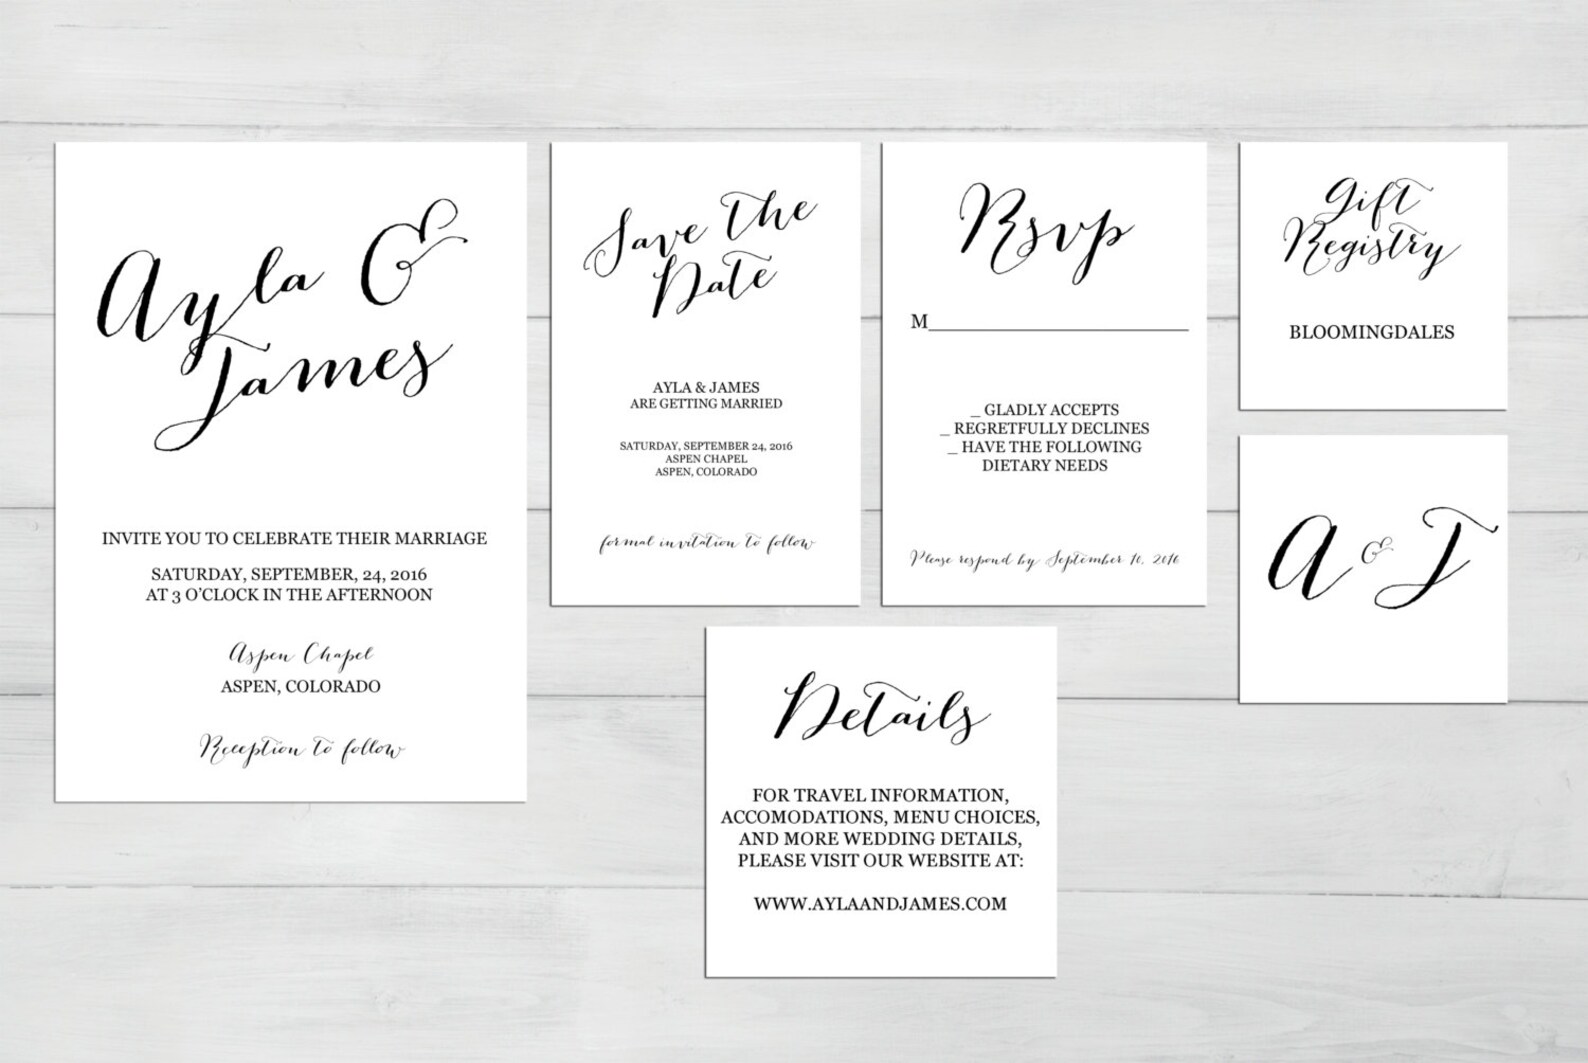 Ayla &
James
INVITE YOU TO CELEBRATE THEIR MARRIAGE
SATURDAY, SEPTEMBER, 24, 2016
AT 3 O'CLOCK IN THE AFTERNOON
Aspen Chapel
ASPEN, COLORADO
Reception to follow
Save the
Date
AYLA & JAMES
ARE GETTING MARRIED
SATURDAY, SEPTEMBER 24, 2016
ASPEN CHAPEL
ASPEN, COLORADO
formal invitation to follow
Rsvp
M____________________
_ GLADLY ACCEPTS
_ REGRETFULLY DECLINES
_ HAVE THE FOLLOWING
DIETARY NEEDS
Please respond by September 10, 2016
Gift
Registry
BLOOMINGDALES
A & J
Details
FOR TRAVEL INFORMATION,
ACCOMODATIONS, MENU CHOICES,
AND MORE WEDDING DETAILS,
PLEASE VISIT OUR WEBSITE AT:
WWW.AYLAANDJAMES.COM